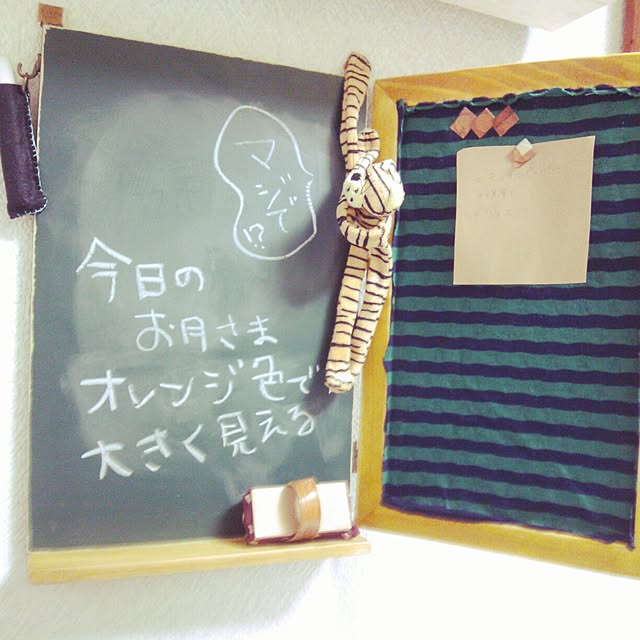 マジで!?
今日の
お月さま
オレンジ色で
大きく見える